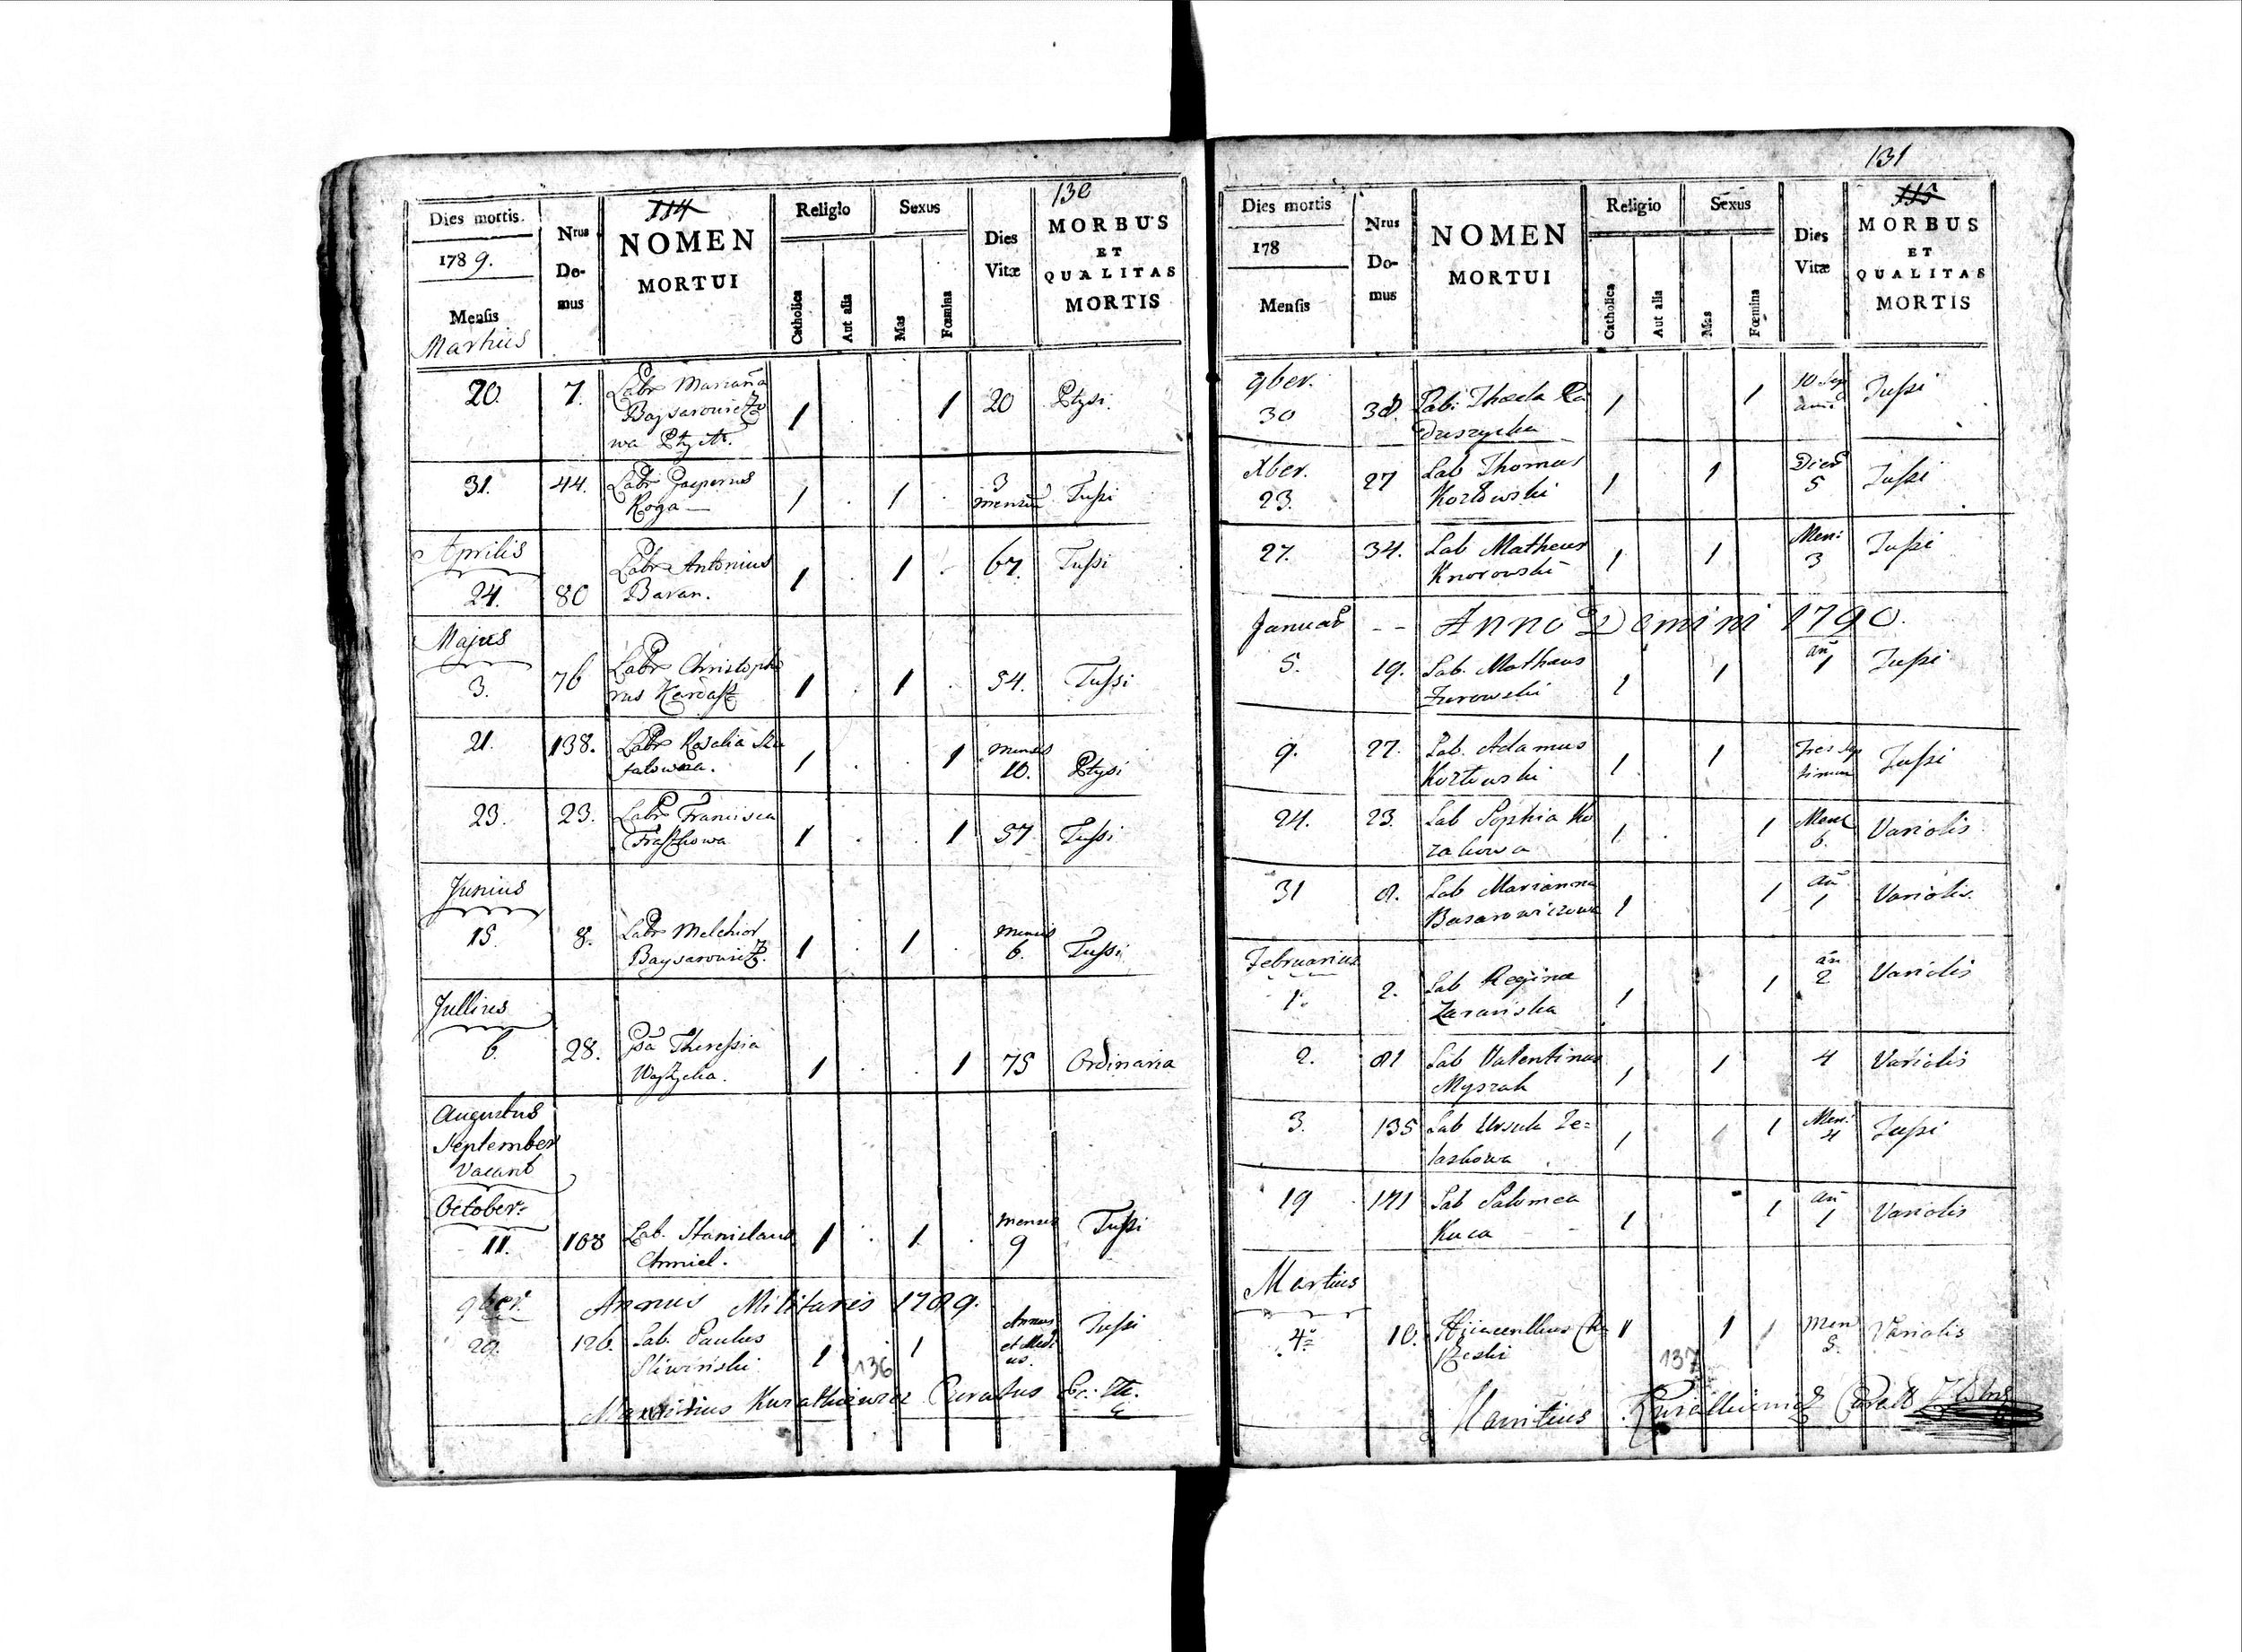 130
114
Dies mortis.
1789.
Mensis
Martius
Nrus
Do-
mus
NOMEN
MORTUI
Religio
Catholica
Aut alia
Sexus
Mas
Fœmina
Dies
Vitæ
MORBUS
ET
QUALITAS
MORTIS
20. 7. Labr Mariaña 1 1 20 Ptysi.
31. 44. Labr Gasperus 1 1 3 Tussi
Roga — mensiu
Aprilis
24. 80 Labr Antonius 1 1 67. Tussi
Baran.
Majus
3. 76 Labr Christopho 1 1 54. Tussi
rus
21. 138. Labr Rosalia 1 1 mensis Ptysi
10.
23. 23. Labr Francisca 1 1 57 Tussi
Junius
15. 8. Labr Melchior 1 1 mensis Tussi
Baysarowitz. 6.
Jullius
6. 28. Theressia 1 1 75 Ordinaria
Augustus
September
Vacant
October:
11. 108 Lab. Stanislaus 1 1 mensis Tussi
Chmiel. 9
9ber. Annus Militaris 1789.
29. 126. Lab. Paulus 1 1 Annus Tussi
Sliwinski et Medi
us.
136
Mauritius Kurathiewicz Curatus
131
115
Dies mortis
178
Mensis
Nrus
Do-
mus
NOMEN
MORTUI
Religio
Catholica
Aut alia
Sexus
Mas
Fœmina
Dies
Vitæ
MORBUS
ET
QUALITAS
MORTIS
9ber.
30 38. Thecla Ra 1 1 10 Tussi
duszycka
Xber.
23. 27 Lab Thomas 1 1 Dies Tussi
Kozłowski 5
27. 34. Lab Matheus 1 1 Men: Tussi
Knorowski 3
Januar -- Anno Domini 1790.
5. 19. Lab. Mathæus 1 1 añ 1 Tussi
Zurowski
9. 27. Lab. Adamus 1 1 Tres sep Tussi
Kozłowski timan
24. 23. Lab Sophia Ko 1 1 Mens Variolis
zakowa 6.
31 8. Lab Marianna 1 1 añ Variolis.
Basarowiczowa 1
Februarius
1. 2. Lab Regina 1 1 añ Variolis
Zaranska 2
2. 81 Lab Valentinus 1 1 4 Variolis
Myszak
3. 135 Lab Ursula Ze= 1 1 Men: Tussi
laskowa 4
19 171 Lab Salomea 1 1 añ Variolis
Kuca 1
Martius
4. 10. 1 1 1 Men Variolis
5.
137
Mauritius